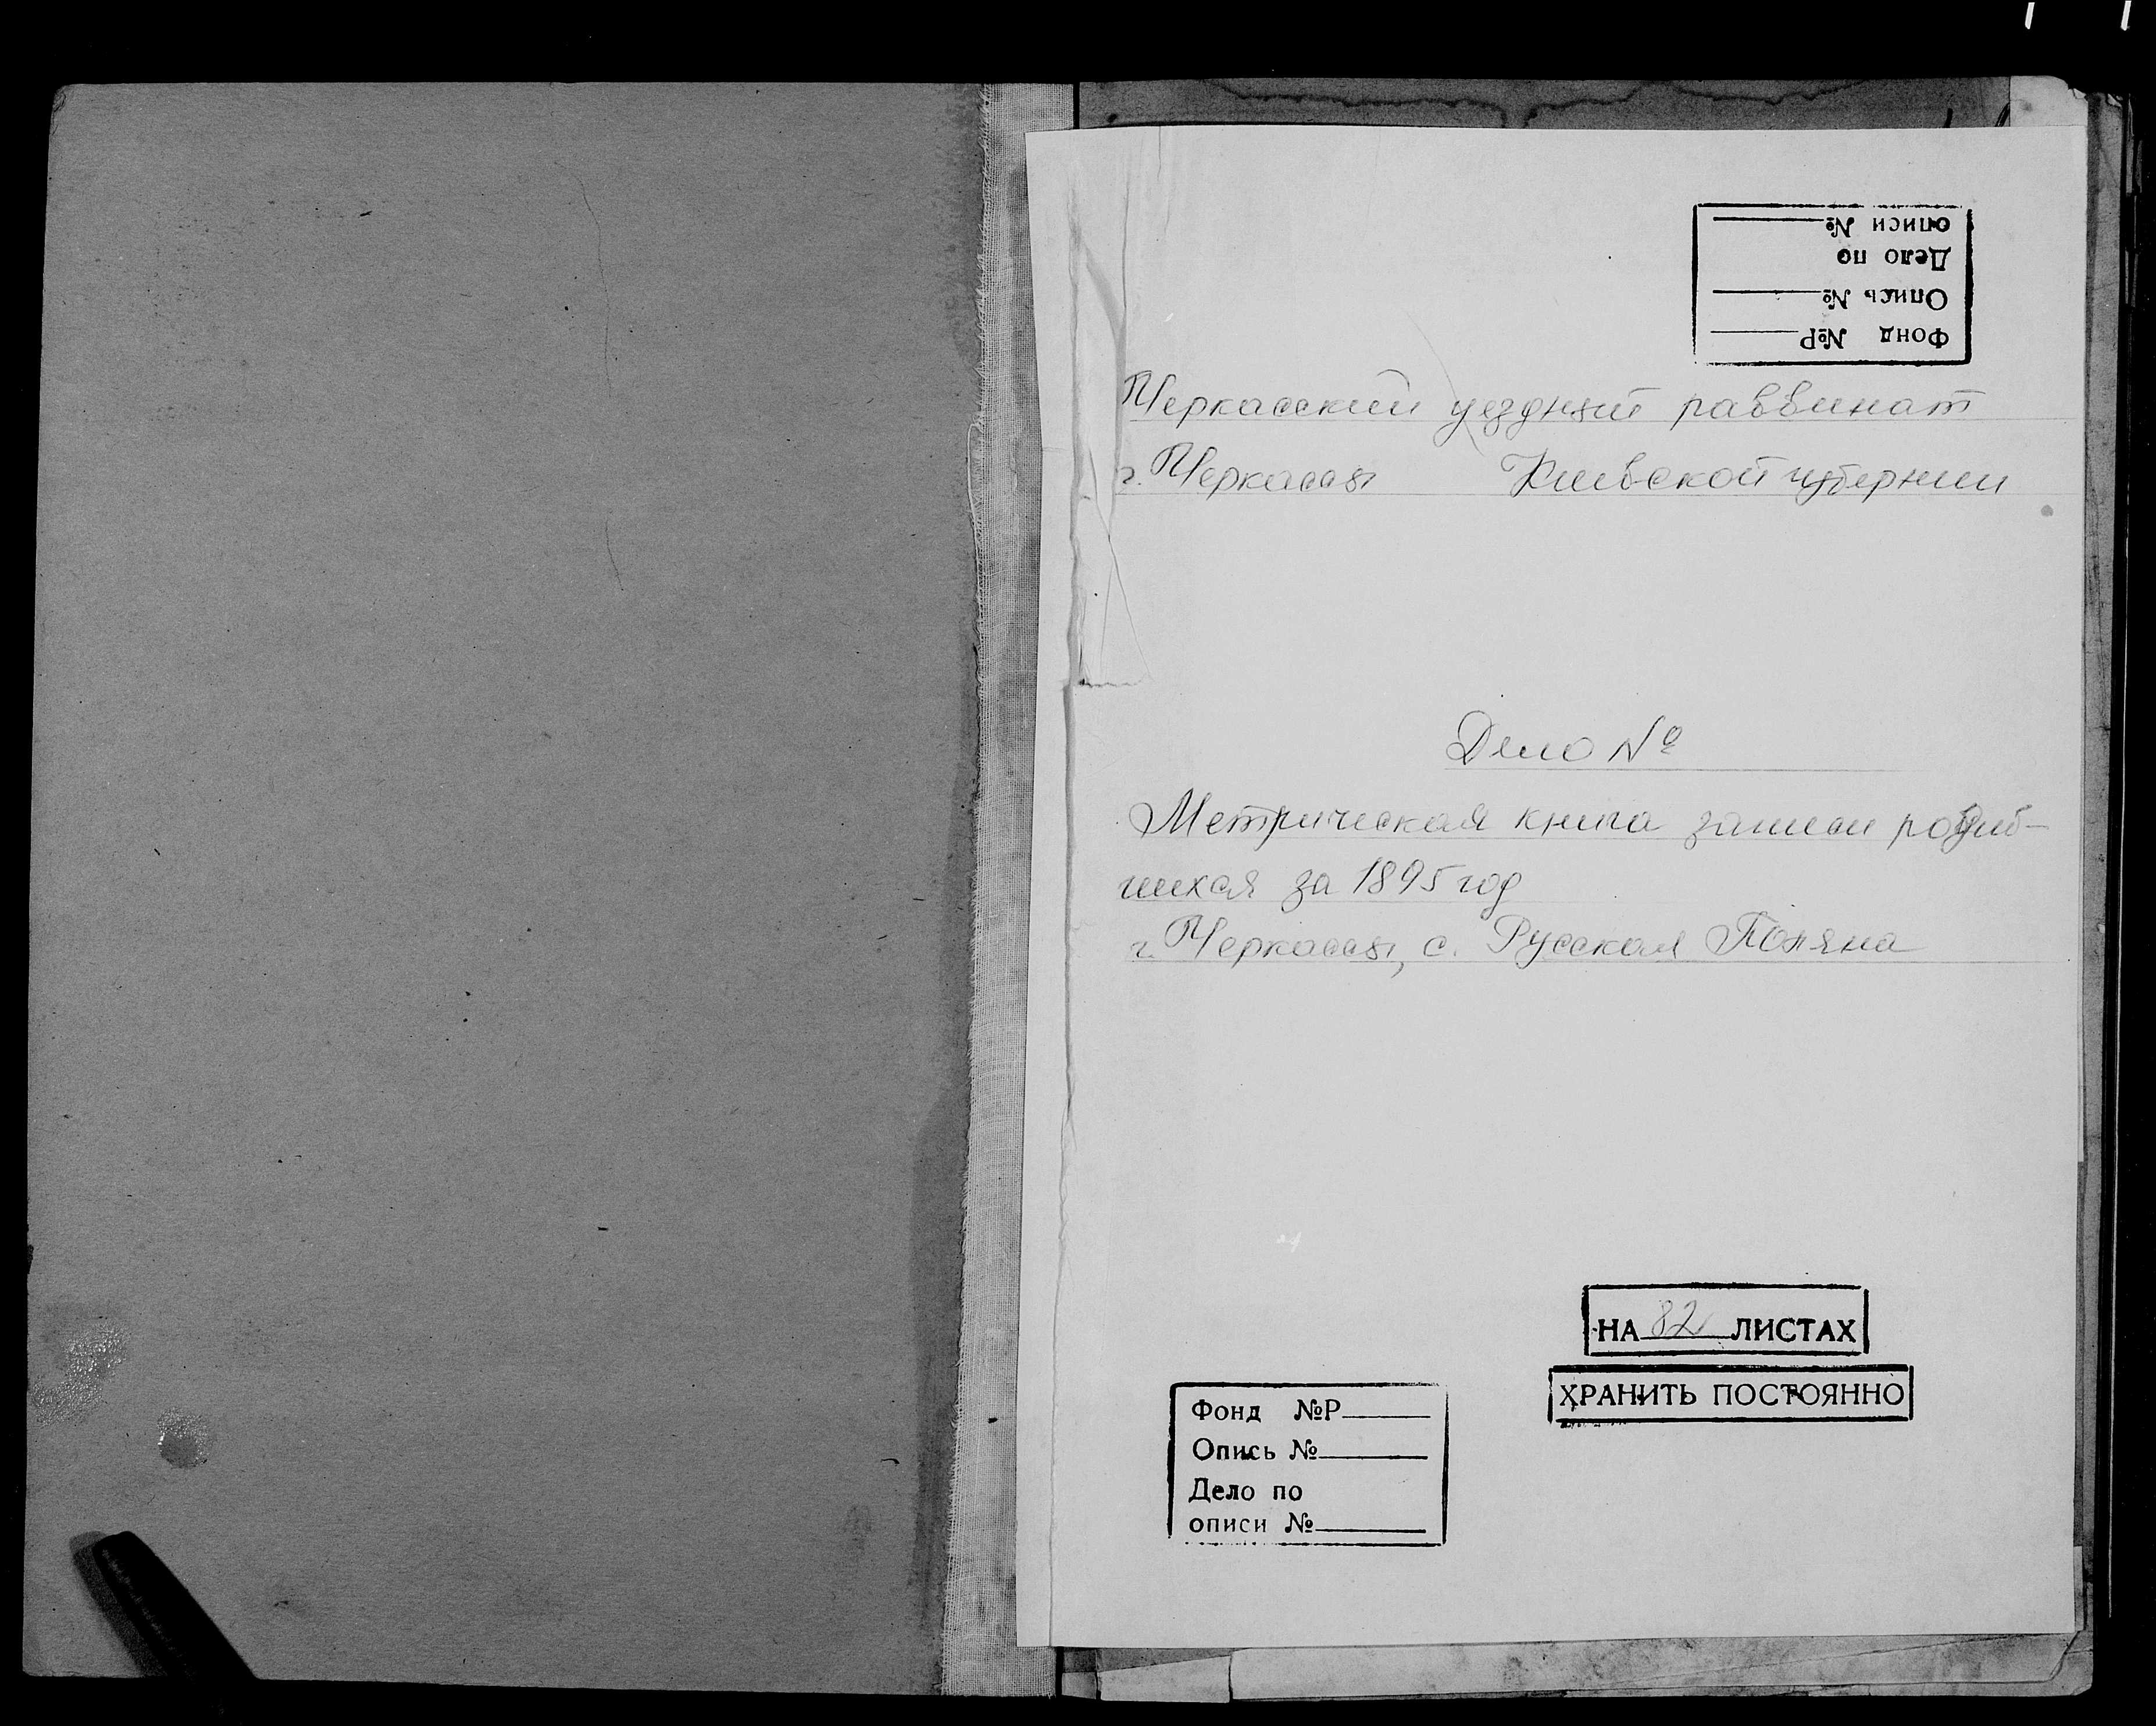 Фонд №Р
Опись №
Дело по
описи №
Черкасский уездный раввинат
г. Черкассы Киевской губернии
Дело №
Метрическая книга записи родив-
шихся за 1895 год
г. Черкассы, с. Русская Поляна
НА 82 ЛИСТАХ
ХРАНИТЬ ПОСТОЯННО
Фонд №Р
Опись №
Дело по
описи №